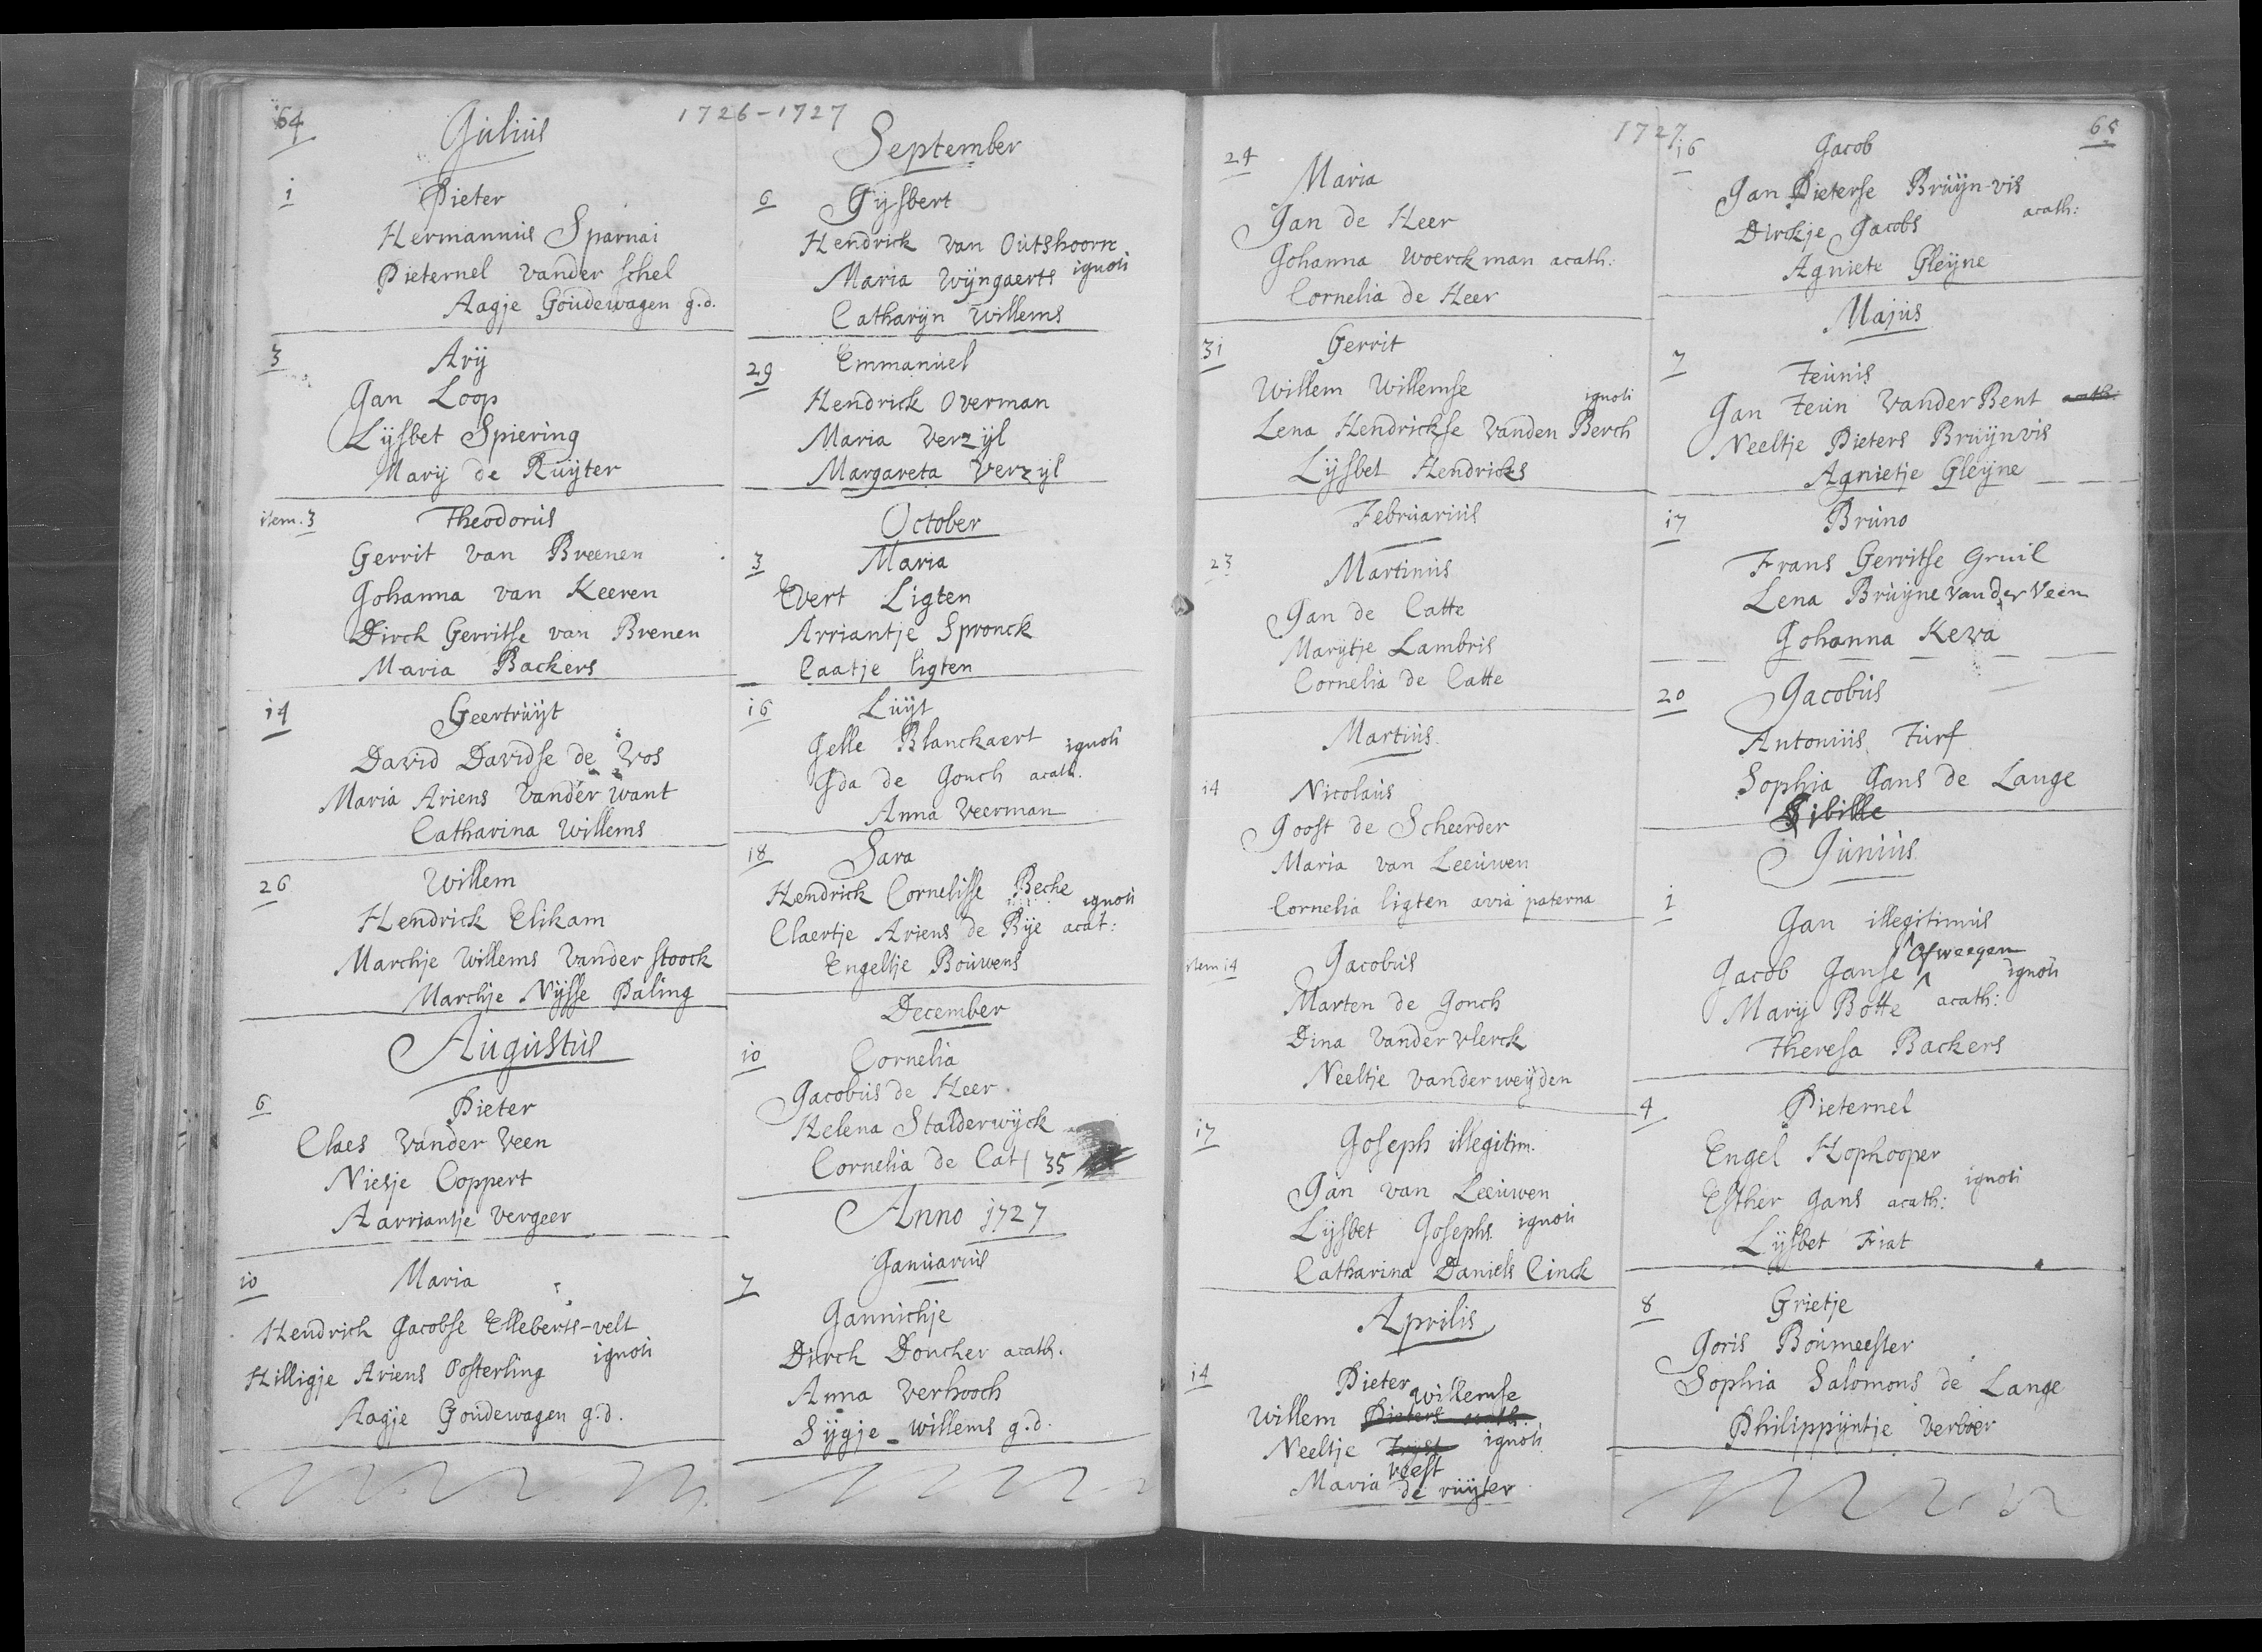 64
1726-1727
Julius
1
Pieter
Hermannus Sparnai
Pieternel vander schel
Aagje Goudewagen g.d.
3
Arij
Jan Loop
Lijsbet Spiering
Marij de Ruijter
item. 3
Theodorus
Gerrit van Breenen
Johanna van Keeren
Dirck Gerritse van Brenen
Maria Backers
14
Geertruijt
David Davidse de Vos
Maria Ariens vander want
Catharina Willems
26
Willem
Hendrick Elikam
Marchje Willems vander stoock
Marchje Nijsse Paling
Augustus
6
Pieter
Claes vander Veen
Niesje Coppert
Aarriantje vergeer
10
Maria
Hendrick Jacobse Elleberts-velt
Hilligje Ariens Oosterling ignoti
Aagje Goudewagen g.d.
September
6
Gijsbert
Hendrick van Outshoorn
Maria Wijngaerts ignoti
Catharijn Willems
29
Emmanuel
Hendrick Overman
Maria Verzijl
Margareta Verzijl
October
3
Maria
Evert Ligten
Arriantje Spronck
Caatje ligten
16
Luijt
Jelle Blanckaert ignoti
Ida de Jonch acath.
Anna Veerman
18
Sara
Hendrick Cornelisse Beche ignoti
Claertje Ariens de Bije acat:
Engeltje Bouwens
December
10
Cornelia
Jacobus de Heer
Helena Stalderwijck
Cornelia de Cat 35
Anno 1727
Januarius
7
Jannichje
Dirck Doncker acath.
Anna Verhooch
Sijgje willems g.d.
1727
65
24
Maria
Jan de Heer
Johanna Woerckman acath:
Cornelia de Heer
31
Gerrit
Willem Willemse ignoti
Lena Hendrickse vanden Berch
Lijsbet Hendricks
Februarius
23
Martinus
Jan de Catte
Marijtje Lambris
Cornelia de Catte
Martius
14
Nicolaus
Joost de Scheerder
Maria van Leeuwen
Cornelia ligten avia paterna
item 14
Jacobus
Marten de Jonch
Dina vander vlerck
Neeltje vander weijden
17
Joseph illegitim.
Jan van Leeuwen
Lijsbet Josephs ignoti
Catharina Daniels Cinck
Aprilis
14
Pieter
Willemse
Willem Pieters acath.
Neeltje ignoti
veest
Maria de ruijter
16
Jacob
Jan Pieterse Bruijn-vis
Dirckje Jacobs acath:
Agniete Gleijne
Majus
7
Teunis
Jan Teun Vander Bent acath:
Neeltje Pieters Bruijnvis
Agnietje Gleijne
17
Bruno
Frans Gerritse Gruil
Lena Bruijne van der Veen
Johanna Keva
20
Jacobus
Antonius Turf
Sophia Jans de Lange
Sibille
Junius
1
Jan illegitimus
Ofweegen
Jacob Janse ignoti
Marij Botte acath:
Theresa Backers
4
Pieternel
Engel Hophooper
Esther Jans acath: ignoti
Lijsbet Fiat
8
Grietje
Joris Boumeester
Sophia Salomons de Lange
Philippijntje Verboer